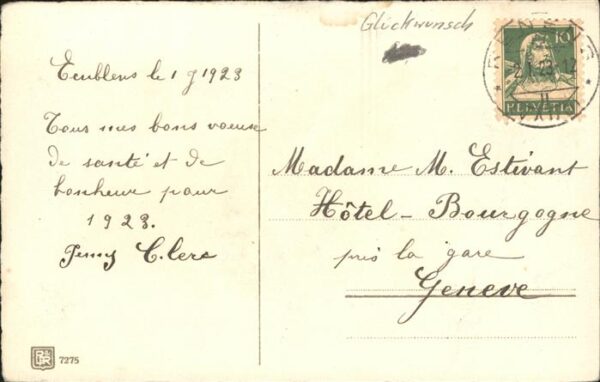 Glückwunsch
10
HELVETIA
le 1 J 1923
Tous mes bons voeux
de santé et de
bonheur pour
1923.
Jenny Clerc
Madame M. Estivant
Hôtel - Bourgogne
près la gare
Geneve
7275